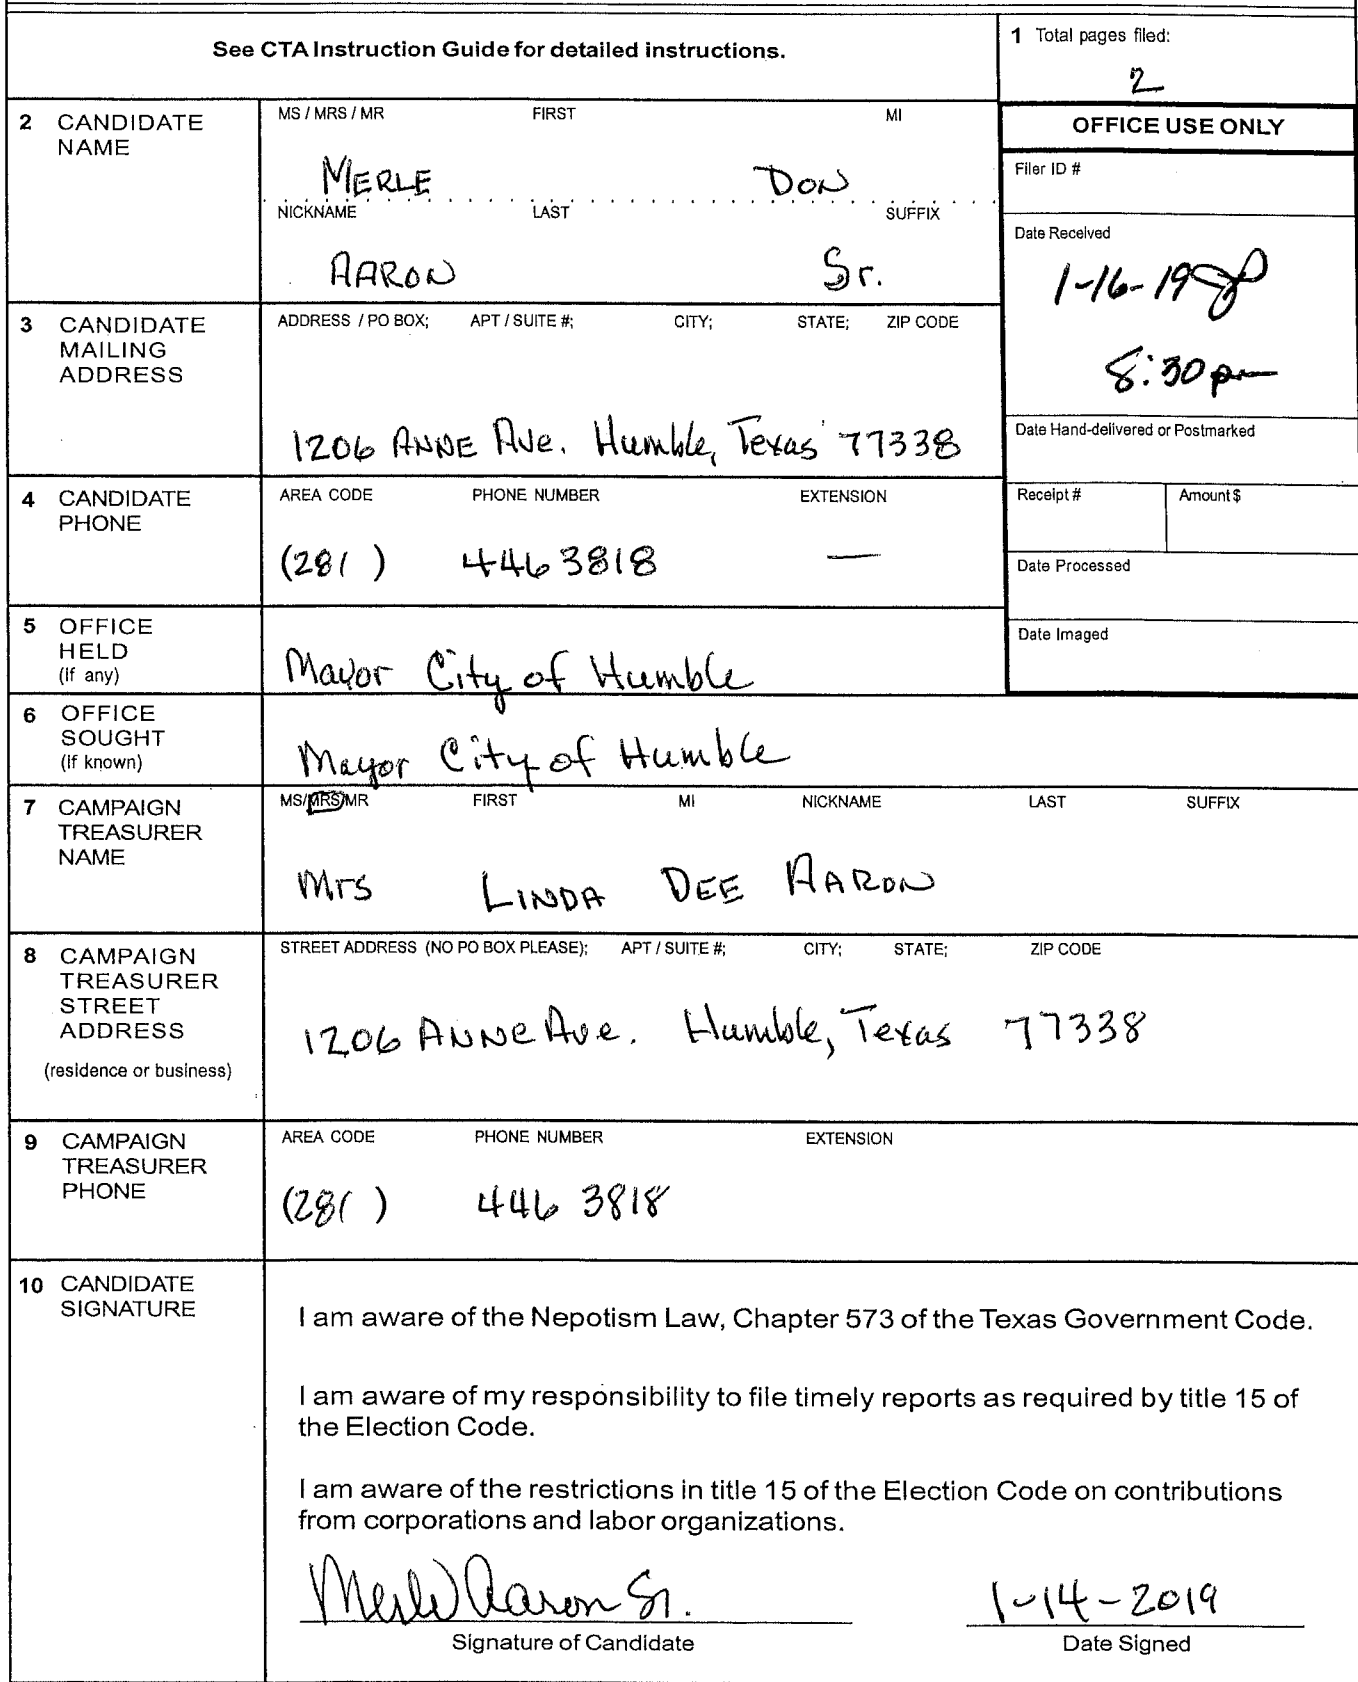 See CTA Instruction Guide for detailed instructions.
1 Total pages filed:
2
2 CANDIDATE NAME
MS / MRS / MR FIRST MI
MERLE DON
NICKNAME LAST SUFFIX
AARON Sr.
OFFICE USE ONLY
Filer ID #
Date Received
1-16-19
8:30 pm
Date Hand-delivered or Postmarked
Receipt # Amount $
Date Processed
Date Imaged
3 CANDIDATE MAILING ADDRESS
ADDRESS / PO BOX; APT / SUITE #; CITY; STATE; ZIP CODE
1206 ANNE Ave. Humble, Texas 77338
4 CANDIDATE PHONE
AREA CODE PHONE NUMBER EXTENSION
(281) 446 3818 —
5 OFFICE HELD (if any)
Mayor City of Humble
6 OFFICE SOUGHT (if known)
Mayor City of Humble
7 CAMPAIGN TREASURER NAME
MS/MRS/MR FIRST MI NICKNAME LAST SUFFIX
Mrs LINDA DEE AARON
8 CAMPAIGN TREASURER STREET ADDRESS (residence or business)
STREET ADDRESS (NO PO BOX PLEASE); APT / SUITE #; CITY; STATE; ZIP CODE
1206 ANNE Ave. Humble, Texas 77338
9 CAMPAIGN TREASURER PHONE
AREA CODE PHONE NUMBER EXTENSION
(281) 446 3818
10 CANDIDATE SIGNATURE
I am aware of the Nepotism Law, Chapter 573 of the Texas Government Code.
I am aware of my responsibility to file timely reports as required by title 15 of
the Election Code.
I am aware of the restrictions in title 15 of the Election Code on contributions
from corporations and labor organizations.
Merle Aaron Sr. 1-14-2019
Signature of Candidate Date Signed